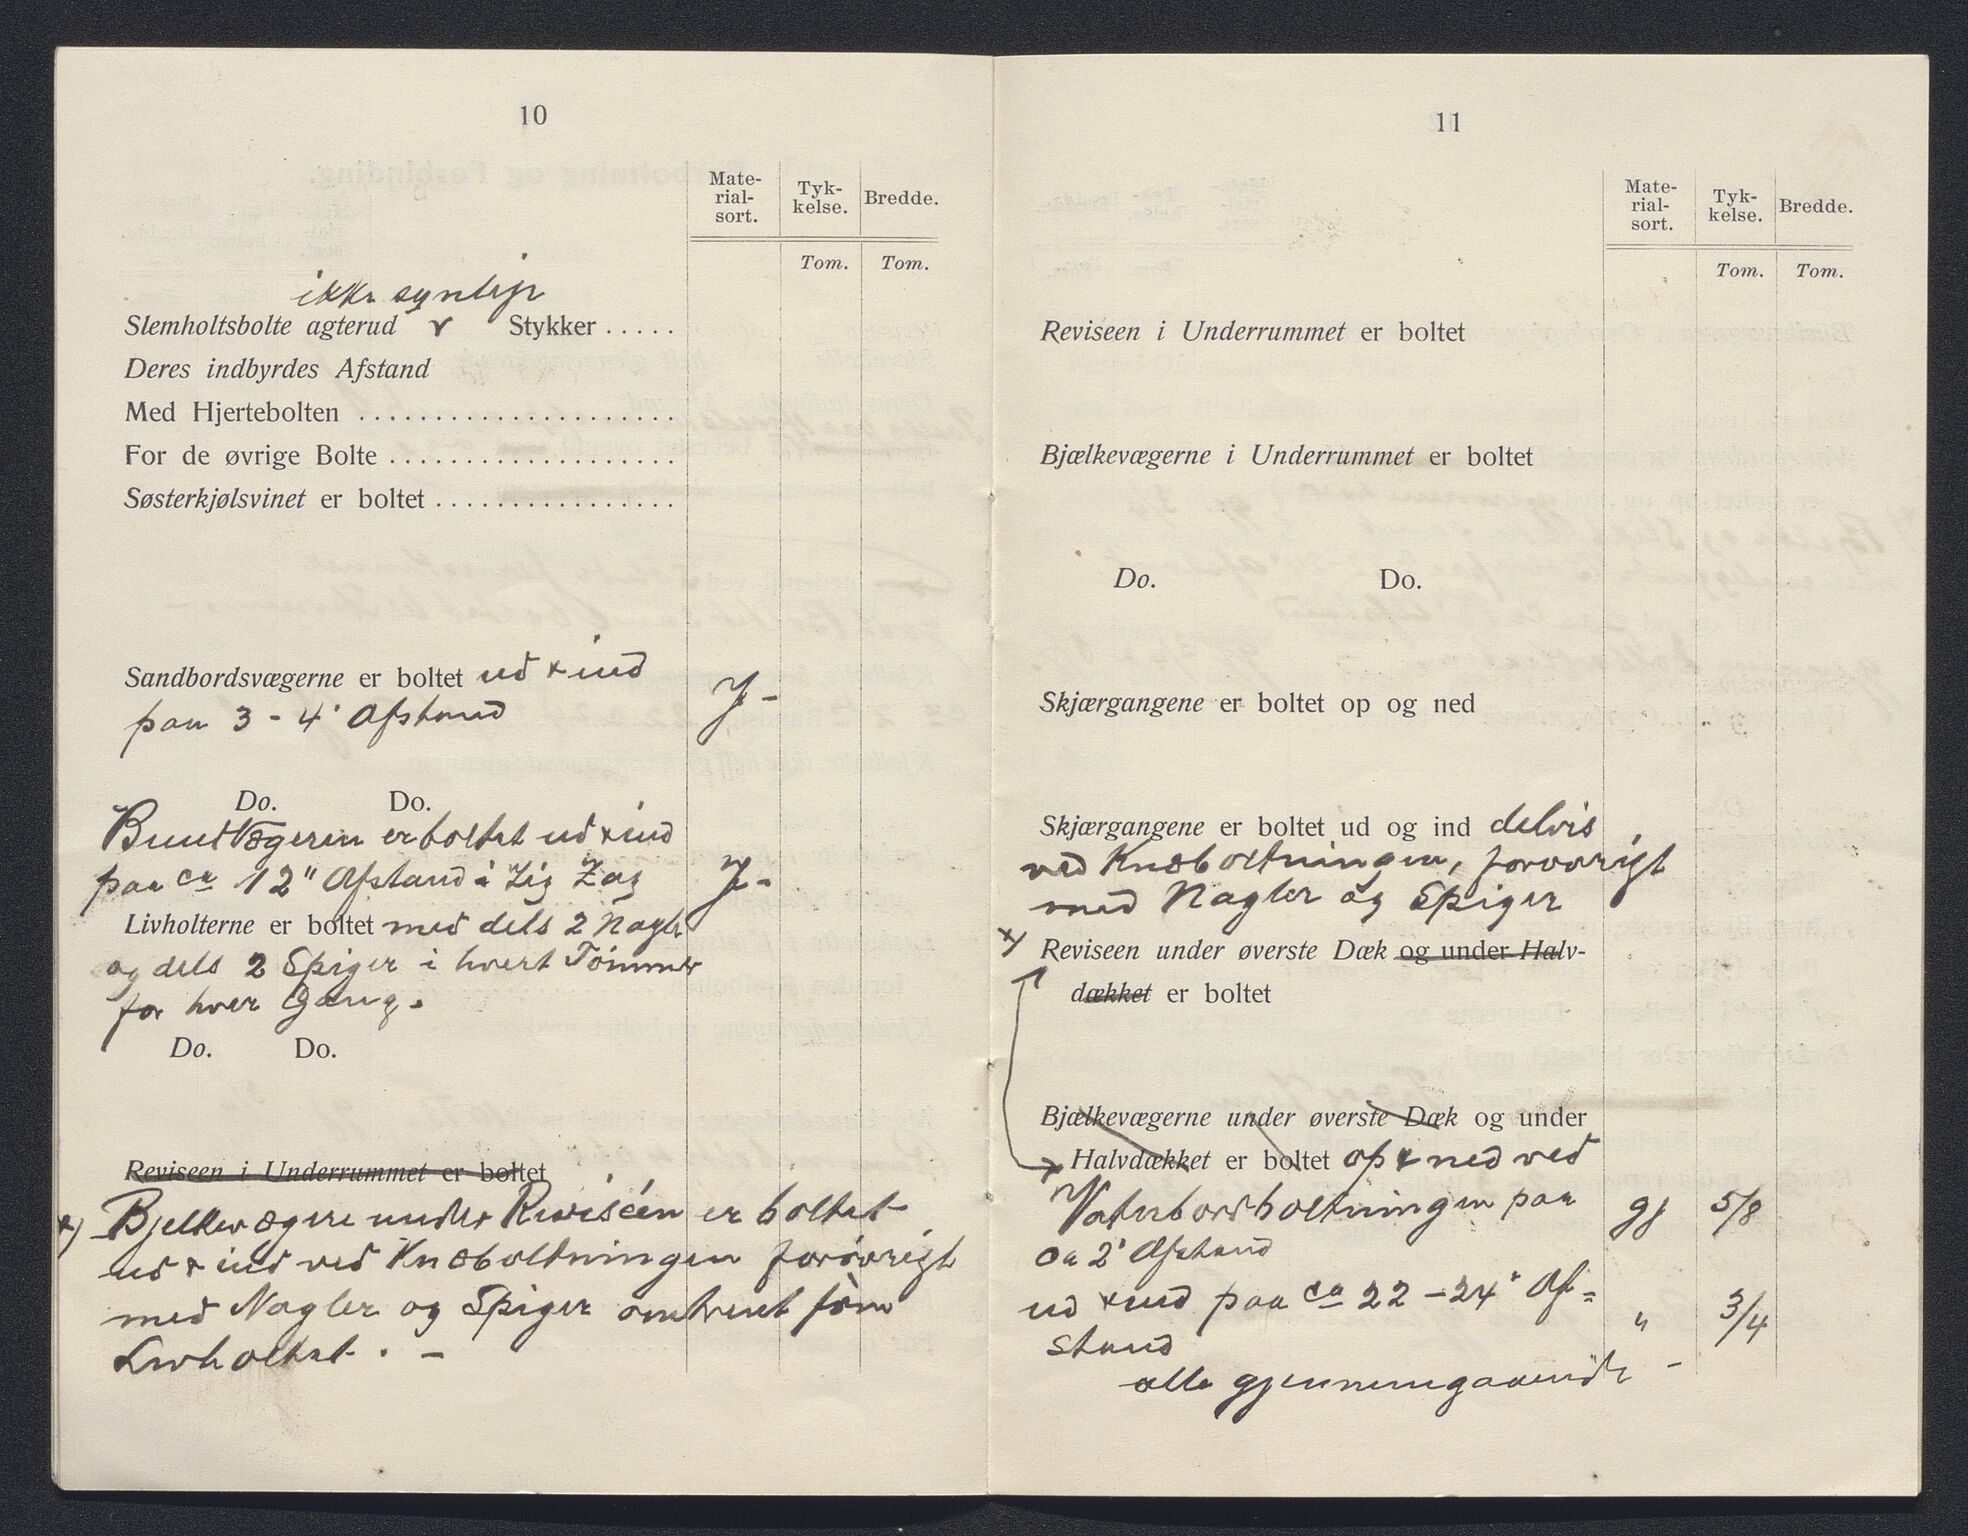 10
Mate-
rial-
sort.
Tyk-
kelse.
Bredde.
Tom.
Tom.
ikke synlige
Slemholtsbolte agterud Stykker .....
Deres indbyrdes Afstand
Med Hjertebolten .....................
For de øvrige Bolte ...................
Søsterkjølsvinet er boltet ................
Sandbordsvægerne er boltet ud & ind
paa 3 - 4' Afstand J -
Do. Do.
Bundvægeren er boltet ud & ind
paa ca 12" Afstand i Zig Zag J -
Livholterne er boltet med dels 2 Nagler
og dels 2 Spiger i hvert Tømmer
for hver Gang.
Do. Do.
Reviseen i Underrummet er boltet
x) Bjelkevægere under Reviséen er boltet
ud & ind ved Knæboltningen forøvrigt
med Nagler og Spiger omtrent som
Livholtet. -
11
Mate-
rial-
sort.
Tyk-
kelse.
Bredde.
Tom.
Tom.
Reviseen i Underrummet er boltet
Bjælkevægerne i Underrummet er boltet
Do. Do.
Skjærgangene er boltet op og ned
Skjærgangene er boltet ud og ind delvis
ved Knæboltningen, forøvrigt
med Nagler og Spiger
x) Reviseen under øverste Dæk og under Halv-
dækket er boltet
Bjælkevægerne under øverste Dæk og under
Halvdækket er boltet op & ned ved
Vaterbordboltningen paa gj 5/8
ca 2' Afstand
ud & ind paa ca 22 - 24" Af=
stand " 3/4
alle gjennemgaaende -